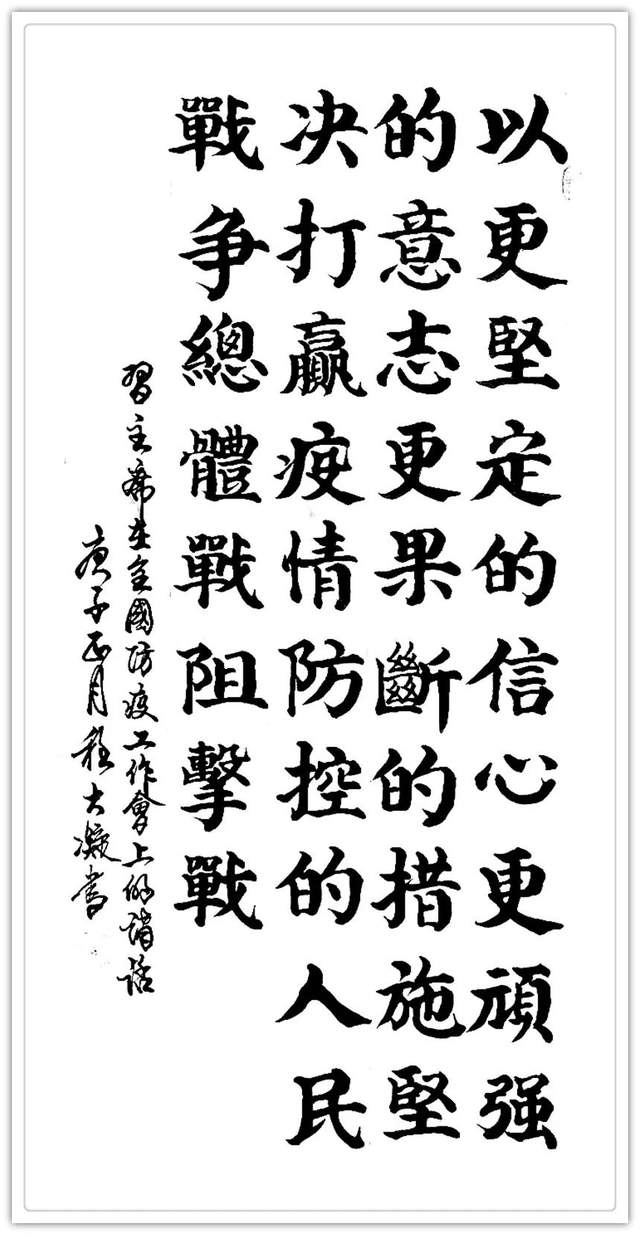 以更堅定的信心更頑强
的意志更果斷的措施堅
决打贏疫情防控的人民
戰争總體戰阻擊戰
習主席在全國防疫工作會上的講話
庚子正月程大凝書